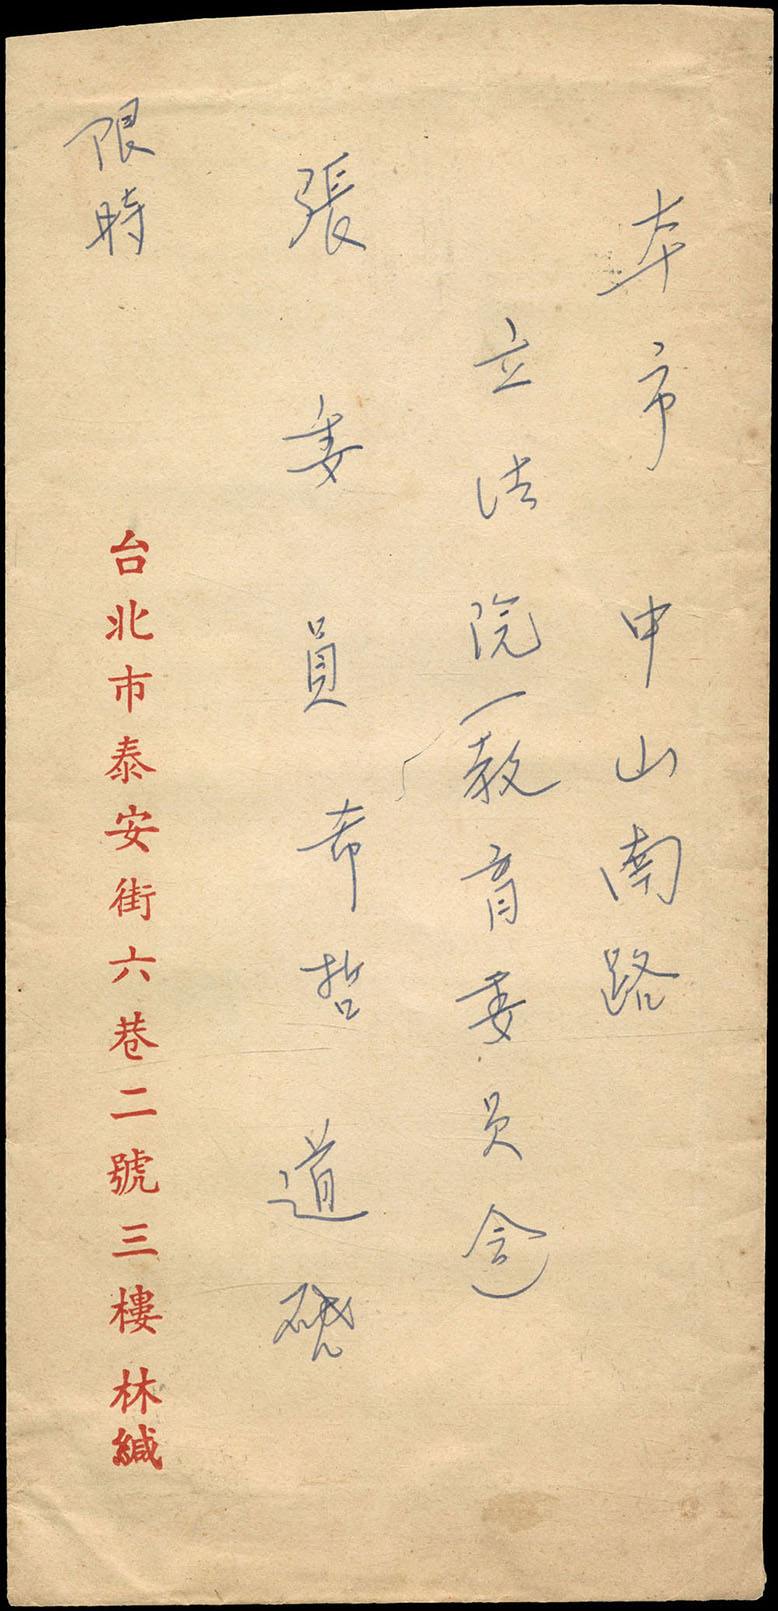 本市中山南路
立法院（教育委員會）
張委員希哲道硯
限時
台北市泰安街六巷二號三樓林緘